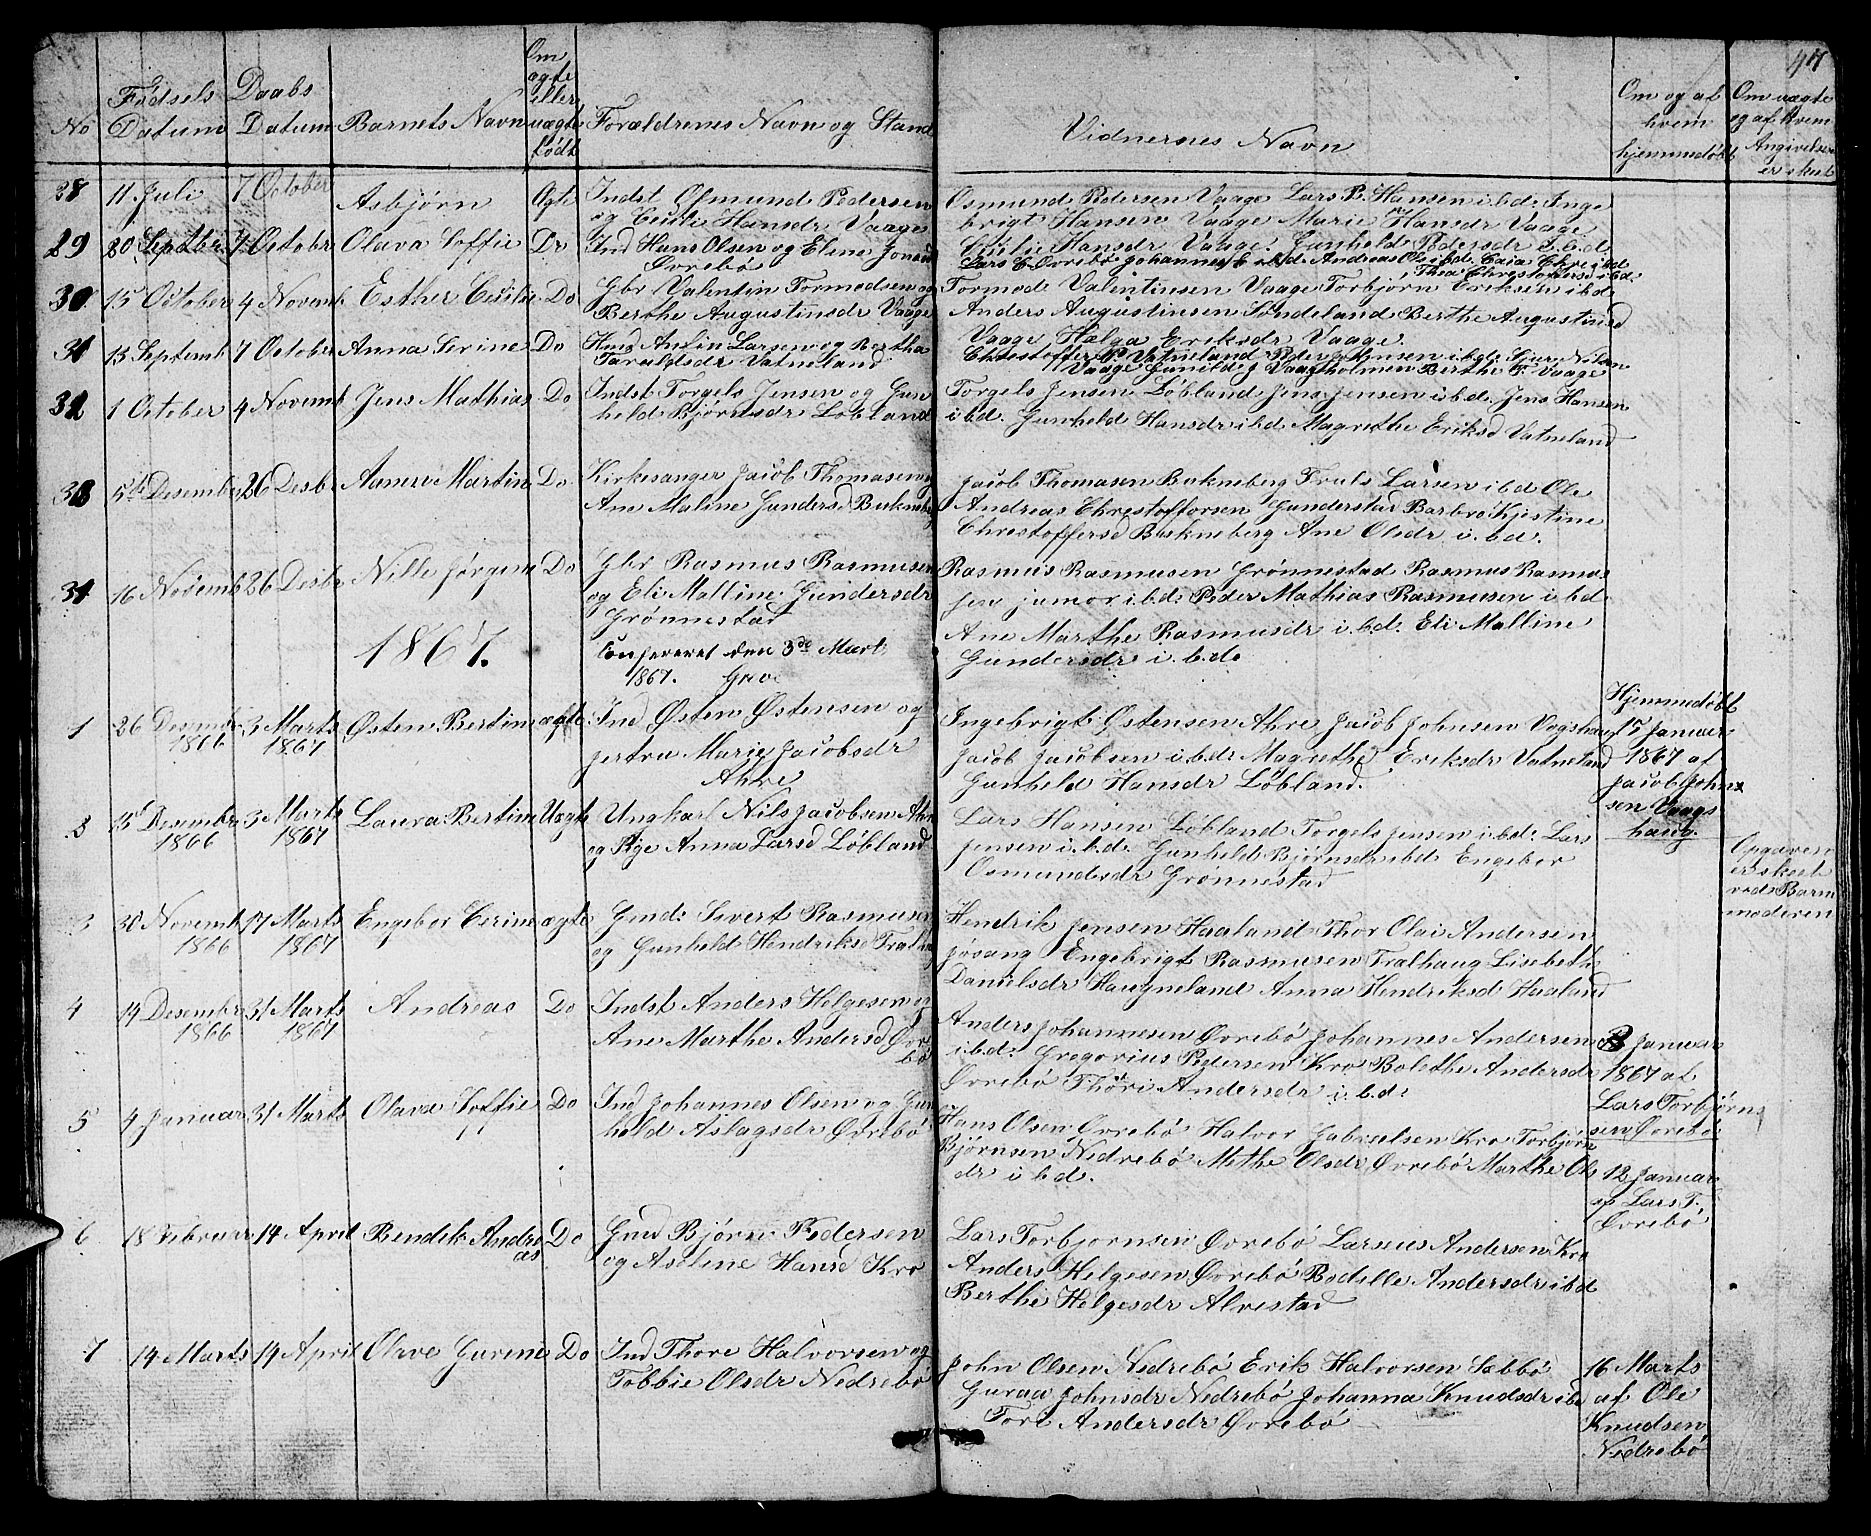 47
No
Fødsels Datum
Daabs Datum
Barnets Navn
Om ægte eller uægte født
Forældrenes Navn og Stand
Vidnernes Navn
Om og af hvem hjemmedøbt
Om uægte og af hvem Angivelsen er skeet
28 11 Juli 7 October Asbjørn Ægte Indst Osmund Pedersen
og Cecilie Hansdr Vaage
Osmund Pedersen Vaage Lars P. Hansen i.b.d. Inge
brigt Hansen Vaage Marie Hansdr Vaage
Cecilie Hansdr Vaage. Gunheld Pedersdr i.b.d.
29 20 Septbr 7 Octobr Olava Soffie Do Ind Hans Olsen og Eline Jonasd
Øvrebø
Lars E. Øvrebø Johannes E i.b.d. Andreas Ols i.bd. Caia Chre i.bd
Thea Chrestoffersd i.b.d.
30 15 October 4 Novemb Esther Cecilie Do Gbr Valentin Tormodsen og
Berthe Augustinsdr Vaage
Tormod Valentinsen Vaage Torbjørn Eriksen i.b.d
Anders Augustinsen Søndeland Berthe Augustinsd
Vaage Hælga Eriksdr Vaage.
31 13 Septemb 7 October Anna Serine Do Husm Anfin Larsen og Bertha
Taraldsdr Vatneland
Chrestoffer P. Vatneland Peder i.b.d. Sjur Nilsen
Vaage Gunild J Vaagholmen Berthe T. Vaage
32 1 October 4 Novemb Jens Mathias Do Indst Torgels Jensen og Gun
held Bjørnsdr Løbland
Torgels Jensen Løbland Jens Jensen i.b.d. Jens Hansen
i.b.d. Gunheld Hansdr i.b.d. Magrethe Eriksd Vatneland
33 5te Desembr 26 Desbr Martin Do Kirkesanger Jacob Thomasen og
Ane Maline Gundersd Bukneberg
Jacob Thomasen Bukneberg Truls Larsen i.b.d Ole
Andreas Chrestoffersen Gunderstad Barbro Kjistine
Chrestoffersd Bukneberg Ane Olsdr i.b.d.
34 16 Novemb 26 Desbr Nille Jørgine Do Gbr Rasmus Rasmusen
og Eli Malline Gundersdr
Grønnestad
Rasmus Rasmusen Grønnestad Rasmus Rasmus
sen junior i.b.d: Peder Mathias Rasmusen i.b.d
Ane Marthe Rasmusdr i.b.d. Eli Malline
Gundersdr i.b.d.
1867.
Confereret den 3de Mart
1867.
1 26 Desembr 1866 3 Marts 1867 Østen Bertin ægte Ind Østen Østensen og
Jertru Marie Jacobsdr
Ahre
Ingebrigt Østensen Ahre Jacob Johnsen Vogshaug
Jacob Jacobsen i.b.d: Magrethe Eriksdr Vatneland
Gunheld Hansdr Løbland.
Hjemmedøbt
15 Januar
1867 af
Jacob John
sen Vaags
haug.
3 Desembr 1866 3 Marts 1867 Laura Bertine Uægte Ungkarl Nils Jacobsen Ahre
og Pige Anna Larsd Løbland
Lars Hansen Løbland Torgels Jensen i.b.d: Lars
Jensen i.b.d. Gunheld Bjørnsdr i.b.d Engebor
Osmundsdr Grønnestad
Opgaven
er skeet
ved Barne
moderen
3 30 Novemb 1866 17 Marts 1867 Engebor Cerine ægte Gmd: Sivert Rasmusen
og Gunheld Hendriksd Tralhaug
Hendrik Jensen Haaland Thor Olai Andersen
Jøsang Engebrigt Rasmusen Tralhaug Lisebeth
Danielsdr Haugneland Anna Hendriksd Haaland
4 14 Desembr 1866 31 Marts 1867 Andreas Do Indst Anders Helgesen og
Ane Marthe Andersd Øvre
bø
Anders Johannesen Øvrebø Johannes Andersen
i.b.d: Gregorius Pedersen Kro Bolethe Andersdr
Øvrebø Thori Andersdr i.b.d:
3 Januar
1867 af
Lars Torbjørns
sen Øvrebø
5 4 Januar 31 Marts Olava Soffie Do Ind Johannes Olsen og Gun
held Aslagsdr Øvrebø
Hans Olsen Øvrebø Halvor Gabrielsen Kro Torbjørn
Bjørnsen Nedrebø Methe Olsdr Øvrebø Marthe Ols
dr i.b.d.
12 Januar
af Lars T.
Øvrebø
6 18 Februar 14 April Bendik Andre
as Do Gmd Bjørn Pedersen
og Aseline Hansd Kro
Lars Torbjornsen Øvrebø Larsius Andersen Kro
Anders Helgesen Øvrebø Bodelle Andersdr i.b.d
Berthe Helgesdr Alvestad
7 14 Marts 14 April Olave Gurine Do Ind Thore Halvorsen og
Tobbie Olsdr Nedrebø
John Olsen Nedrebø Erik Halvorsen Sæbbø
Guraa Johnsdr Nedrebø Johanna Knudsdr i.bd
Tore Andersdr Øvrebø
16 Marts
af Ole
Knudsen
Nedrebø